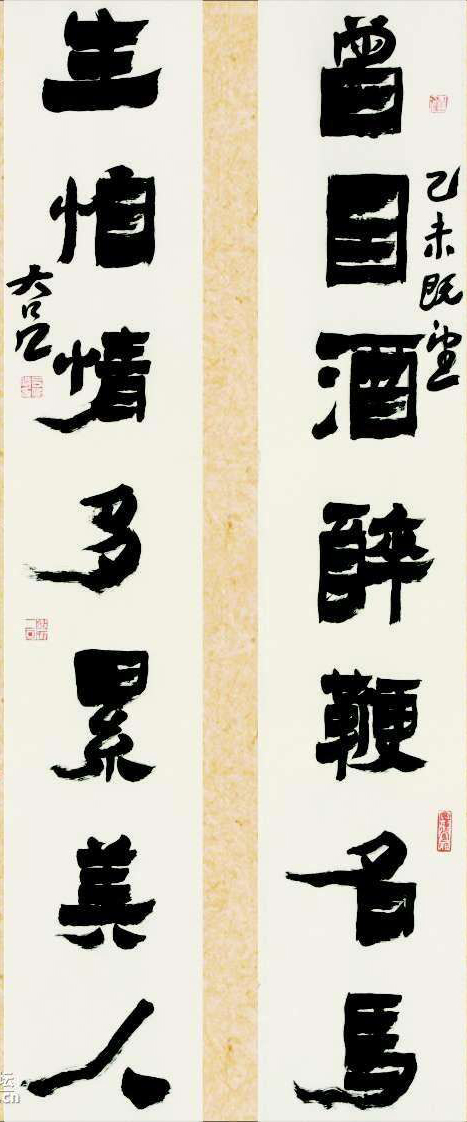 曾因酒醉鞭名馬
乙未既望
生怕情多累美人
大
坛
.cn